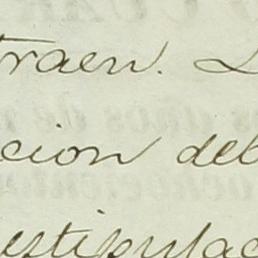 traen. L
cion deb
estipulac